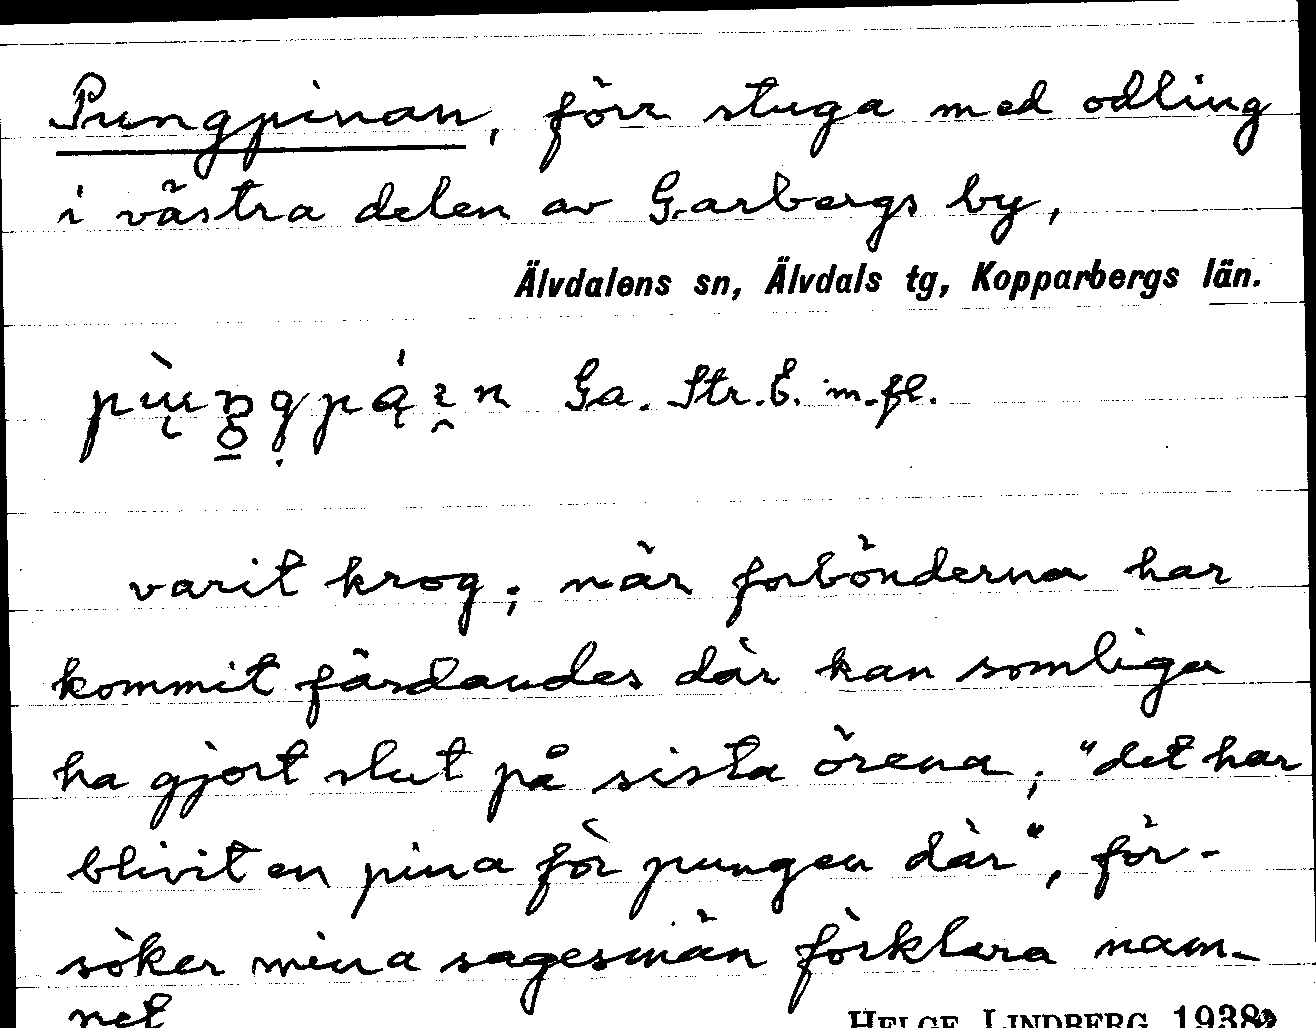 Pungpinan, förr stuga med odling
i västra delen av Garbergs by,
Älvdalens sn, Älvdals tg, Kopparbergs län.
Ga. Str. E. m.fl.
varit krog; när forbönderna har
kommit färdandes där kan somliga
ha gjort slut på sista örena; "det har
blivit en pina för pungen där", för-
söker mina sagesmän förklara nam-
net
HELGE LINDBERG 1938